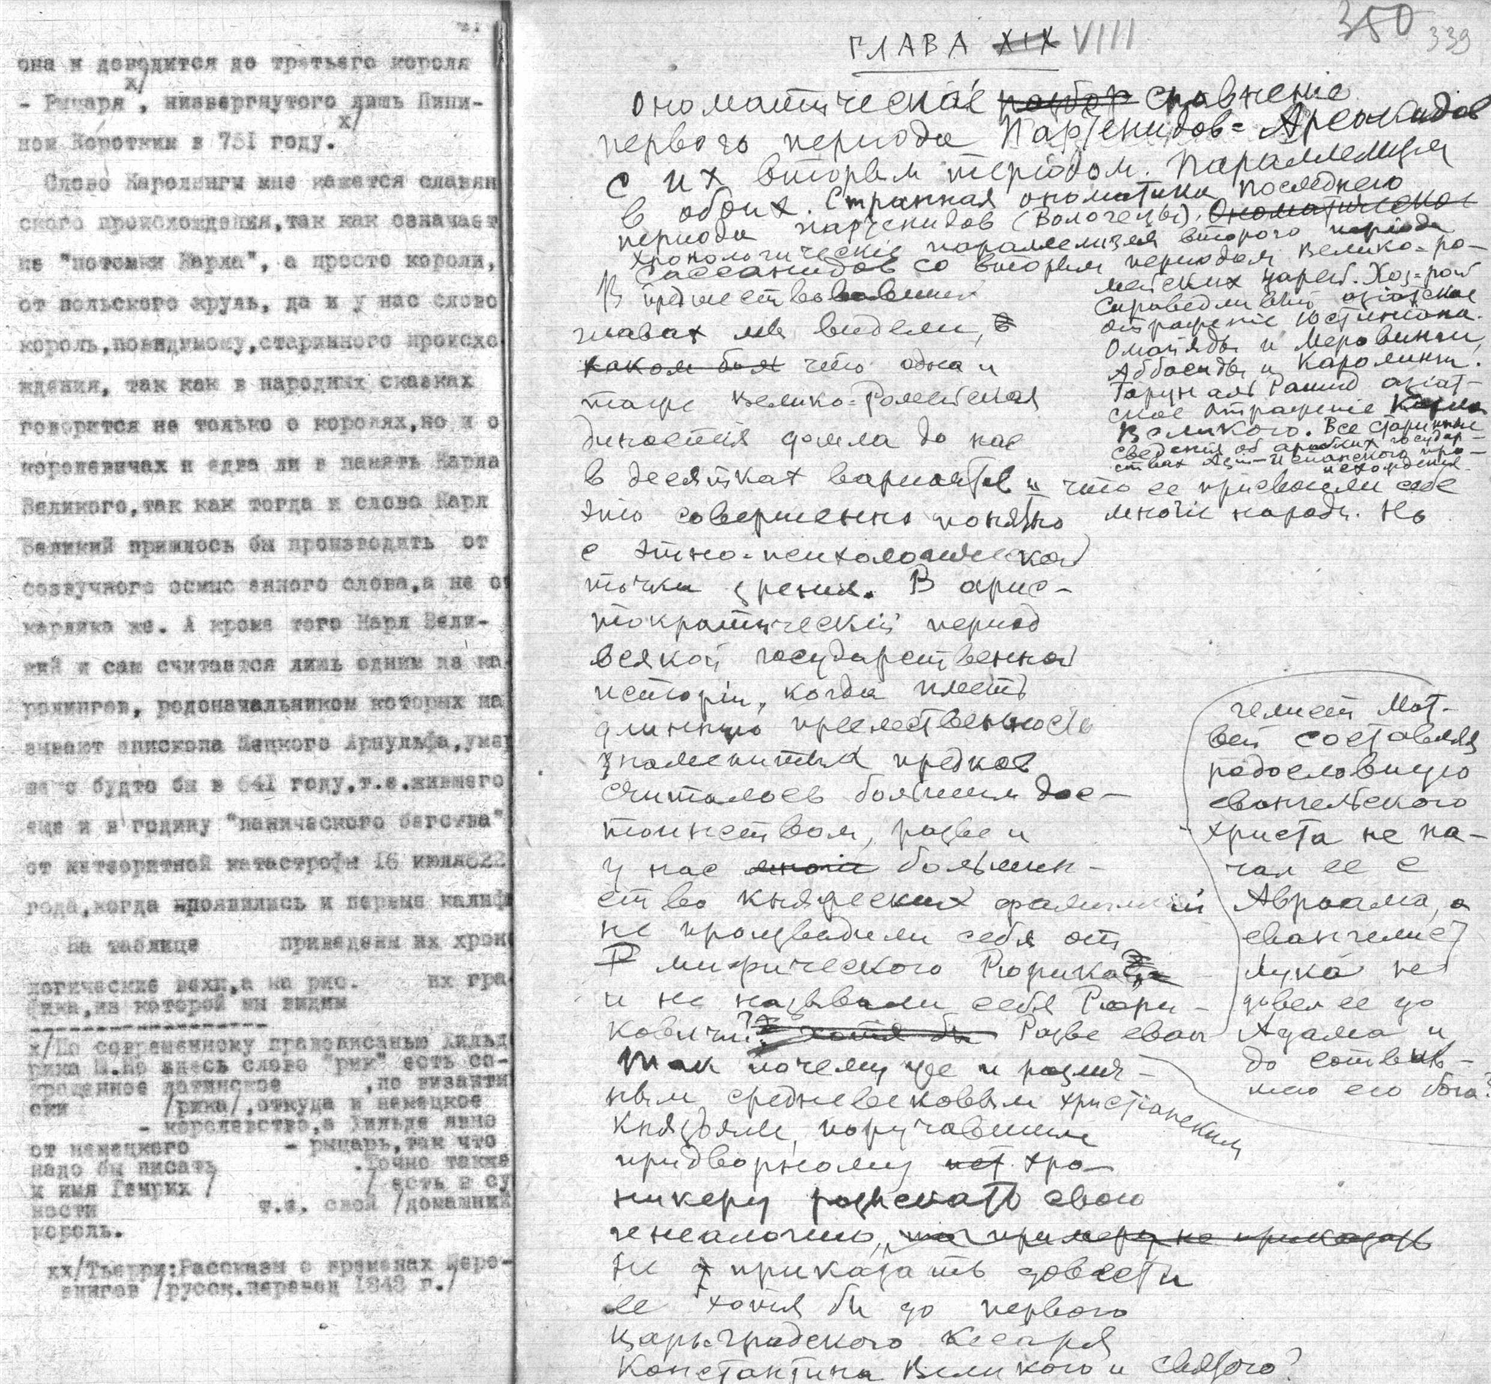 она и доводится до третьего короля
х/
- Рыцаря , низвергнутого лишь Пипи-
х/
ном Коротким в 751 году.
Слово Каролинги мне кажется славян
ского происхождения,так как означает
не "потомки Карла", а просто короли,
от польского круль, да и у нас слово
король,повидимому,старинного происхо
ждения, так как в народных сказках
говорится не только о королях,но и о
королевичах и едва ли в память Карла
Великого,так как тогда и слово Карл
Великий пришлось бы производить от
созвучного осмыс енного слова,а не о
карлика же. А кроме того Карл Вели-
кий и сам считается лишь одним из ка
ролингов, родоначальником которых на
зывают епископа Мецкого Арнульфа,умер
шего будто бы в 641 году,т.е.жившего
еще и в годину "панического бегства"
от метеоритной катастрофы 16 июля622
года,когда проявились и первые калиф
На таблице приведены их хрон
логические вехи,а на рис. их гра
фика,из которой мы видим
х/По современному правописанью Хильд
рика Ш.Но здесь слово "рик" есть со-
кращенное латинское ,по византи
ски /рика/,откуда и немецкое
- королевство,а Хильде явно
от немецкого - рыцарь,так что
надо бы писать .Точно также
и имя Генрих / / есть в су
ности т.е. свой /домашний
король.
хх/Тьерри:Рассказы о временах Меро-
вингов /русск.перевод 1848 г./
350
339
ГЛАВА XIX VIII
Ономатическое разбор сравненіе
первого периода Парѳенидов= Арсакидов
с их вторым періодом. Параллелизм
в обоих. Странная ономатика последнего
периода парѳенидов (Вологезы). Ономатическое
Хронологическіе параллелизм второго періода
Сассанидов со вторым периодом Велико-ро-
мейских царей. Хоз-рой
справедливый азіатское
отраженіе Юстиніана.
Омайяды и Меровинги,
Аббасиды и Каролинги.
Гарун аль Рашид азіат-
ское отраженіе Карла
Великого. Все старинные
сведения об арабских государ-
ствах -испанского про-
исхождения
В предшествовавших
главах мы видели, в
каком бы что одна и
таже Велико=Ромейская
династія дошла до нас
в десятках вариантов и что ее присвоили себе
это совершенно понятно многіе народы. Но
с этно-психологической
точки зрения. В арис-
тократическій период
всякой государственной
исторіи, когда иметь
длинную преемственность
знаменитых предков
считалось большим дос-
тоинством, разве и
у нас многіе большин-
ство княжеских фамилий
не производили себя от
Р мифического Рюрика
и не называли себя Рюри-
ковичи? хотя бы Разве еван
гелист Мат-
вей составляя
родословную
евангельского
Христа не на-
чал ее с
Авраама, а
евангелист
Лука не
довел ее до
Адама и
до сотвоив-
шего его бога?
Так почему же и различ-
ным средневековым христіанским
князьям, поручавшим
придворному хро-
никеру разыскать свою
генеалогію, не приказать
не приказать довести
ее хотя бы до первого
царь-градского Кесаря
Константина Великого и святого?